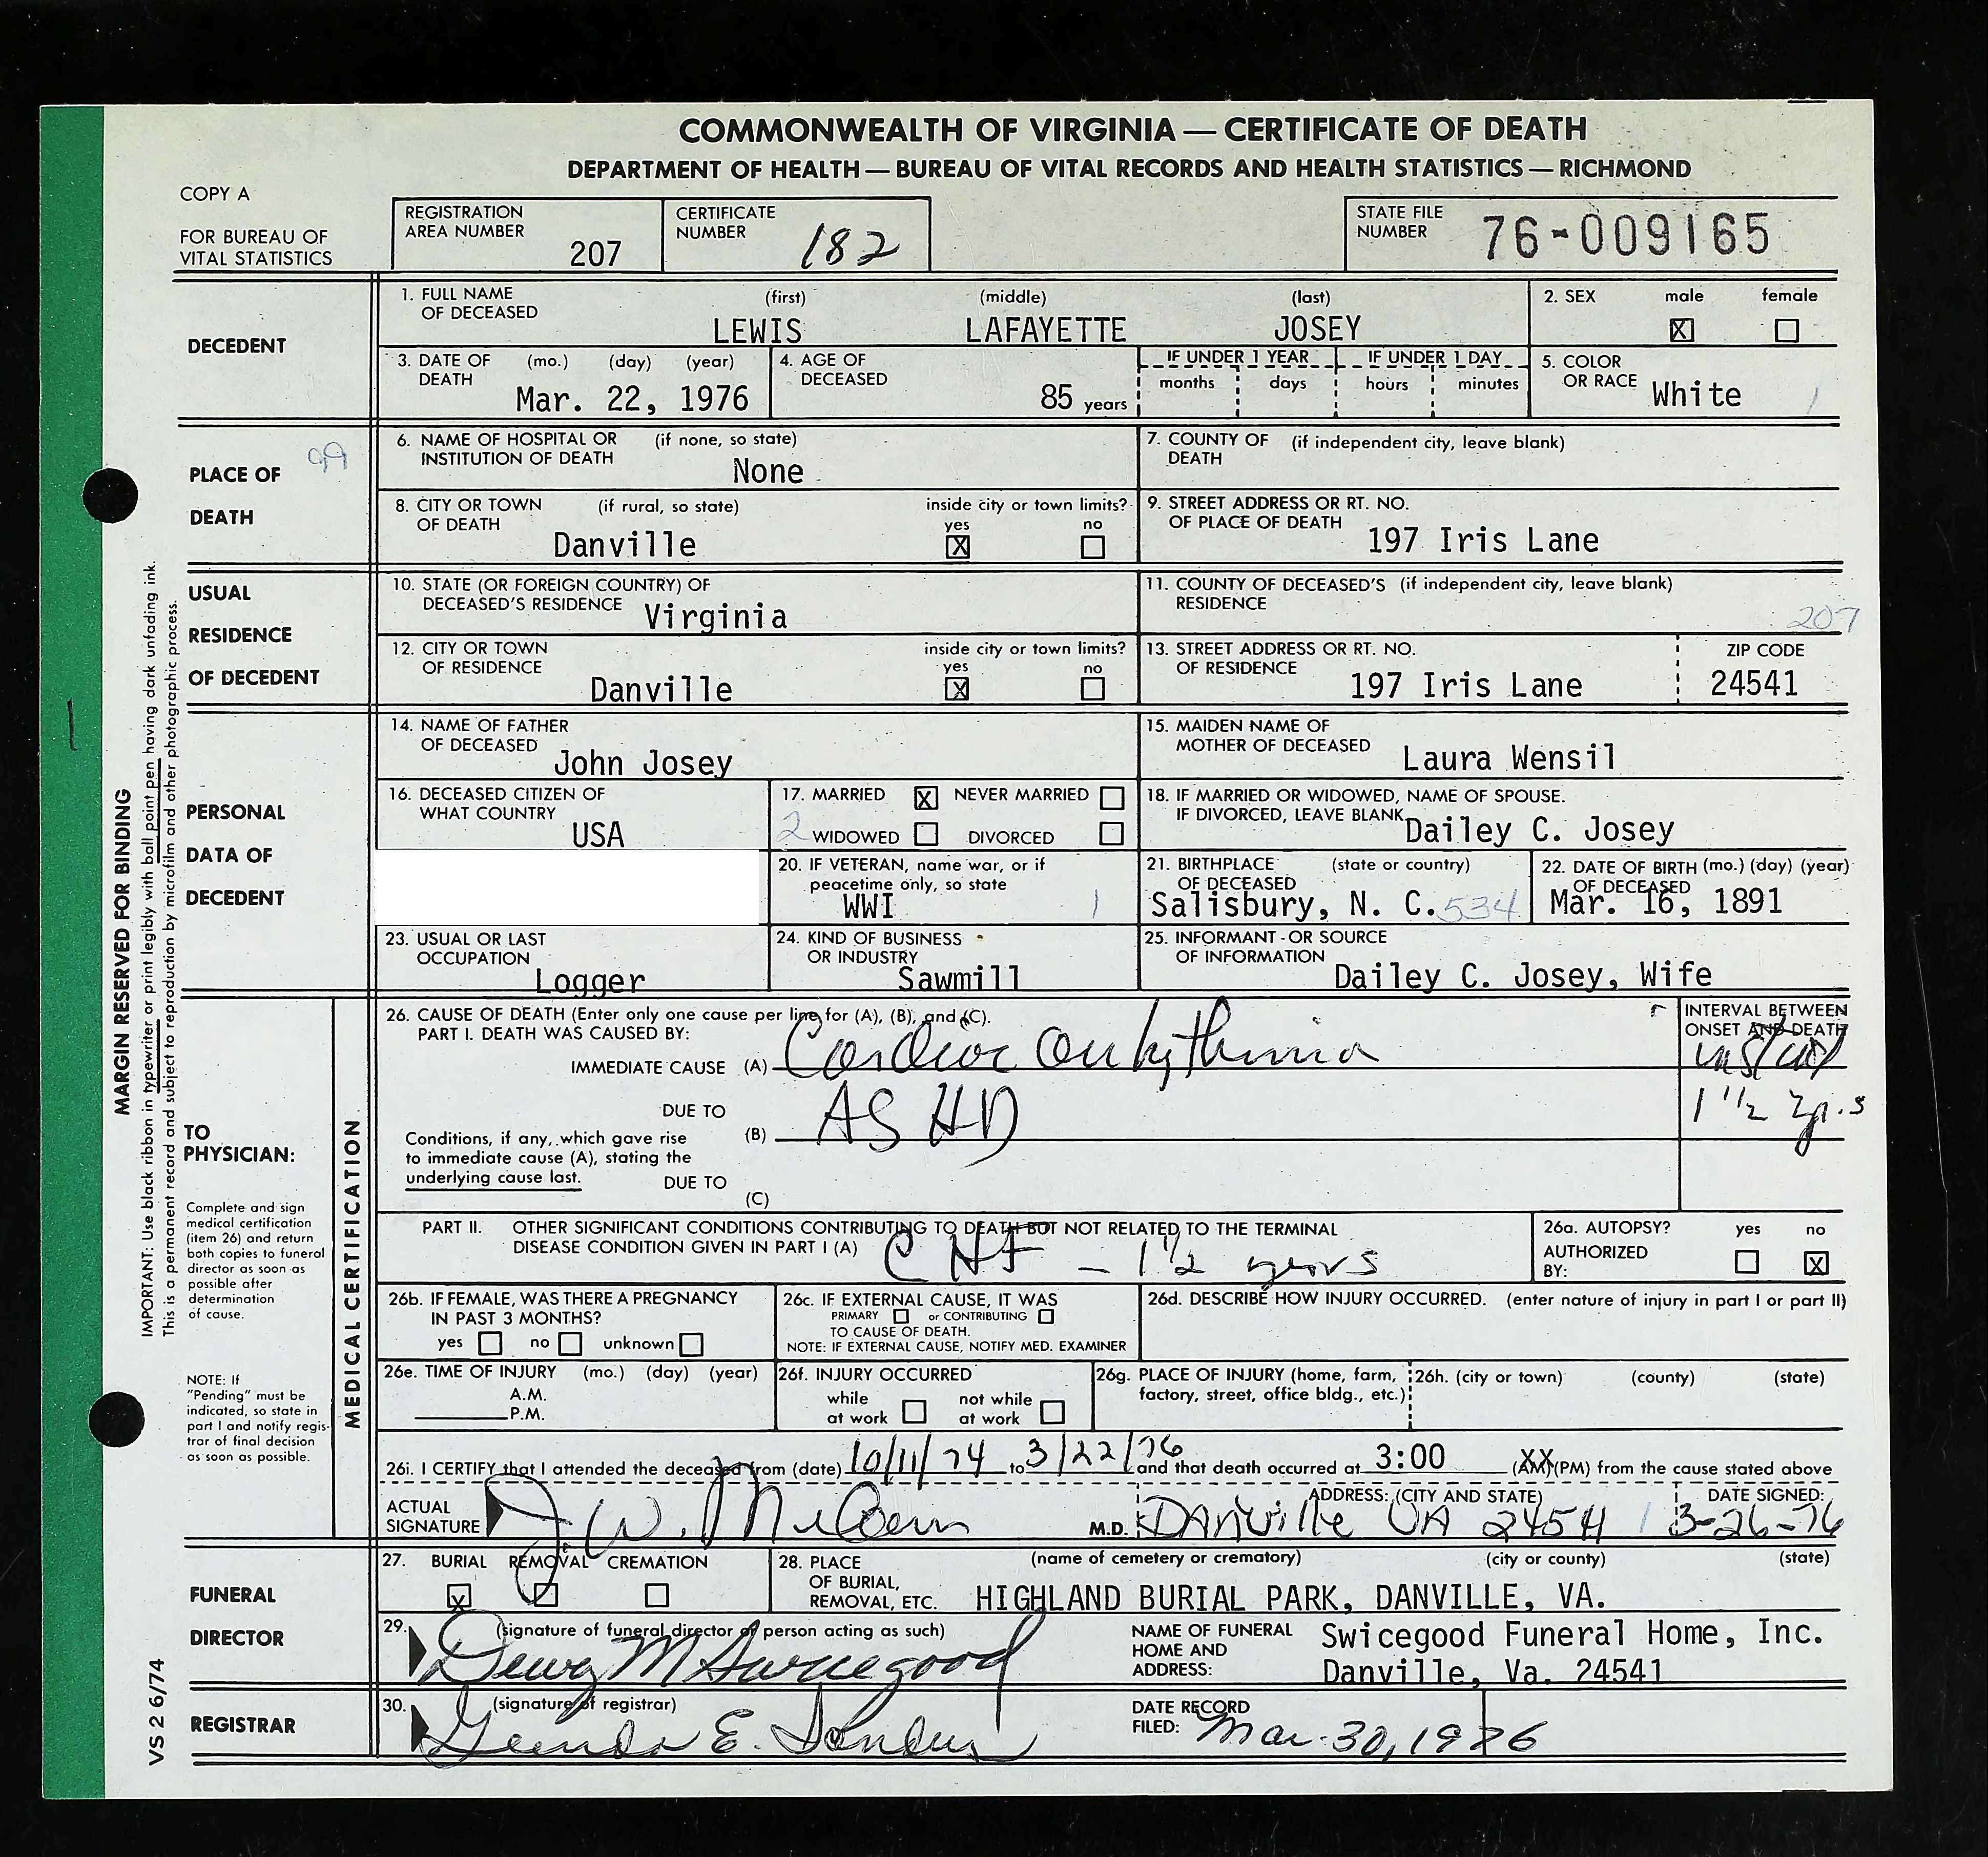 COMMONWEALTH OF VIRGINIA — CERTIFICATE OF DEATH
DEPARTMENT OF HEALTH — BUREAU OF VITAL RECORDS AND HEALTH STATISTICS — RICHMOND
COPY A
FOR BUREAU OF
VITAL STATISTICS
REGISTRATION
AREA NUMBER 207
CERTIFICATE
NUMBER 182
STATE FILE
NUMBER 76-009165
DECEDENT
1. FULL NAME (first) (middle) (last)
OF DECEASED
LEWIS LAFAYETTE JOSEY
2. SEX male female
X
3. DATE OF (mo.) (day) (year)
DEATH
Mar. 22, 1976
4. AGE OF
DECEASED
85 years
IF UNDER 1 YEAR IF UNDER 1 DAY
months days hours minutes
5. COLOR
OR RACE White 1
PLACE OF
DEATH
99
6. NAME OF HOSPITAL OR (if none, so state)
INSTITUTION OF DEATH
None
7. COUNTY OF (if independent city, leave blank)
DEATH
8. CITY OR TOWN (if rural, so state) inside city or town limits?
OF DEATH yes no
Danville X
9. STREET ADDRESS OR RT. NO.
OF PLACE OF DEATH
197 Iris Lane
USUAL
RESIDENCE
OF DECEDENT
10. STATE (OR FOREIGN COUNTRY) OF
DECEASED'S RESIDENCE Virginia
11. COUNTY OF DECEASED'S (if independent city, leave blank)
RESIDENCE
207
12. CITY OR TOWN inside city or town limits?
OF RESIDENCE yes no
Danville X
13. STREET ADDRESS OR RT. NO.
OF RESIDENCE
197 Iris Lane
ZIP CODE
24541
PERSONAL
DATA OF
DECEDENT
14. NAME OF FATHER
OF DECEASED
John Josey
15. MAIDEN NAME OF
MOTHER OF DECEASED Laura Wensil
16. DECEASED CITIZEN OF
WHAT COUNTRY
USA
17. MARRIED X NEVER MARRIED
2 WIDOWED DIVORCED
18. IF MARRIED OR WIDOWED, NAME OF SPOUSE.
IF DIVORCED, LEAVE BLANK
Dailey C. Josey
20. IF VETERAN, name war, or if
peacetime only, so state
WWI 1
21. BIRTHPLACE (state or country)
OF DECEASED
Salisbury, N. C. 534
22. DATE OF BIRTH (mo.) (day) (year)
OF DECEASED
Mar. 16, 1891
23. USUAL OR LAST
OCCUPATION
Logger
24. KIND OF BUSINESS
OR INDUSTRY
Sawmill
25. INFORMANT - OR SOURCE
OF INFORMATION
Dailey C. Josey, Wife
TO
PHYSICIAN:
Complete and sign
medical certification
(item 26) and return
both copies to funeral
director as soon as
possible after
determination
of cause.
NOTE: If
"Pending" must be
indicated, so state in
part I and notify regis-
trar of final decision
as soon as possible.
MEDICAL CERTIFICATION
26. CAUSE OF DEATH (Enter only one cause per line for (A), (B), and (C).
PART I. DEATH WAS CAUSED BY:
INTERVAL BETWEEN
ONSET AND DEATH
IMMEDIATE CAUSE (A) Cardiac arrhythmia instant
DUE TO
(B) ASHD 1 1/2 yrs
Conditions, if any, which gave rise
to immediate cause (A), stating the
underlying cause last. DUE TO
(C)
PART II. OTHER SIGNIFICANT CONDITIONS CONTRIBUTING TO DEATH BUT NOT RELATED TO THE TERMINAL
DISEASE CONDITION GIVEN IN PART I (A) CHF – 1 1/2 years
26a. AUTOPSY? yes no
AUTHORIZED
BY: X
26b. IF FEMALE, WAS THERE A PREGNANCY
IN PAST 3 MONTHS?
yes no unknown
26c. IF EXTERNAL CAUSE, IT WAS
PRIMARY or CONTRIBUTING
TO CAUSE OF DEATH.
NOTE: IF EXTERNAL CAUSE, NOTIFY MED. EXAMINER
26d. DESCRIBE HOW INJURY OCCURRED. (enter nature of injury in part I or part II)
26e. TIME OF INJURY (mo.) (day) (year)
A.M.
P.M.
26f. INJURY OCCURRED
while not while
at work at work
26g. PLACE OF INJURY (home, farm,
factory, street, office bldg., etc.)
26h. (city or town) (county) (state)
26i. I CERTIFY that I attended the deceased from (date) 10/11/74 to 3/22/76 and that death occurred at 3:00 (AM)(PM) from the cause stated above
XX
ACTUAL
SIGNATURE J. W. M.D.
ADDRESS: (CITY AND STATE)
Danville VA 24541
DATE SIGNED:
3-26-76
FUNERAL
DIRECTOR
27. BURIAL REMOVAL CREMATION
X
28. PLACE (name of cemetery or crematory) (city or county) (state)
OF BURIAL,
REMOVAL, ETC. HIGHLAND BURIAL PARK, DANVILLE, VA.
29. (signature of funeral director or person acting as such)
Dewey M Swicegood
NAME OF FUNERAL
HOME AND
ADDRESS:
Swicegood Funeral Home, Inc.
Danville, Va. 24541
REGISTRAR
30. (signature of registrar)
E.
DATE RECORD
FILED: Mar. 30, 1976
MARGIN RESERVED FOR BINDING
IMPORTANT: Use black ribbon in typewriter or print legibly with ball point pen having dark unfading ink.
This is a permanent record and subject to reproduction by microfilm and other photographic process.
VS 2 6/74